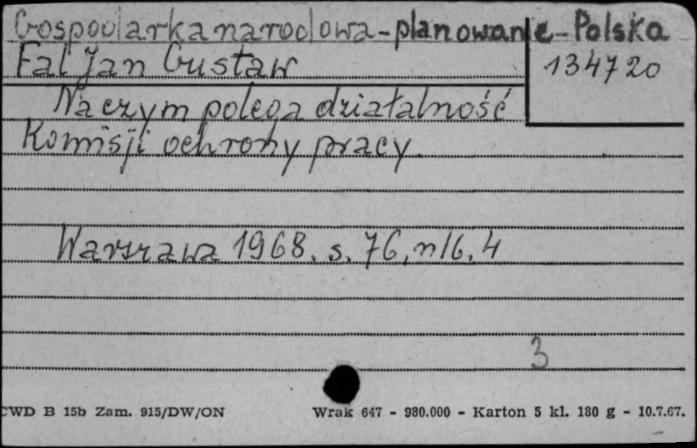 Gospodarka narodowa - planowanie - Polska
Fal Jan Gustaw
134720
Na czym polega działalność
Komisji ochrony pracy.
Warszawa 1968. s. 76, nlb. 4
3
CWD B 15b Zam. 915/DW/ON
Wrak 647 - 980.000 - Karton 5 kl. 180 g - 10.7.67.